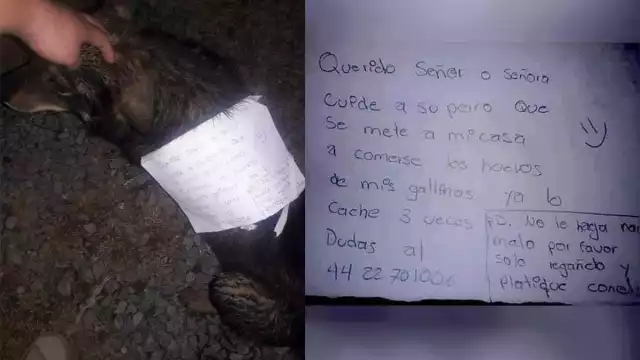 Querido Señor o Señora
Cuide a su perro Que
Se mete a mi casa
a comerse los huevos
de mis gallinas ya lo
Cache 3 veces
Dudas al
44 22 701006
PD. No le haga na
malo por favor
solo regañelo y
platique con el